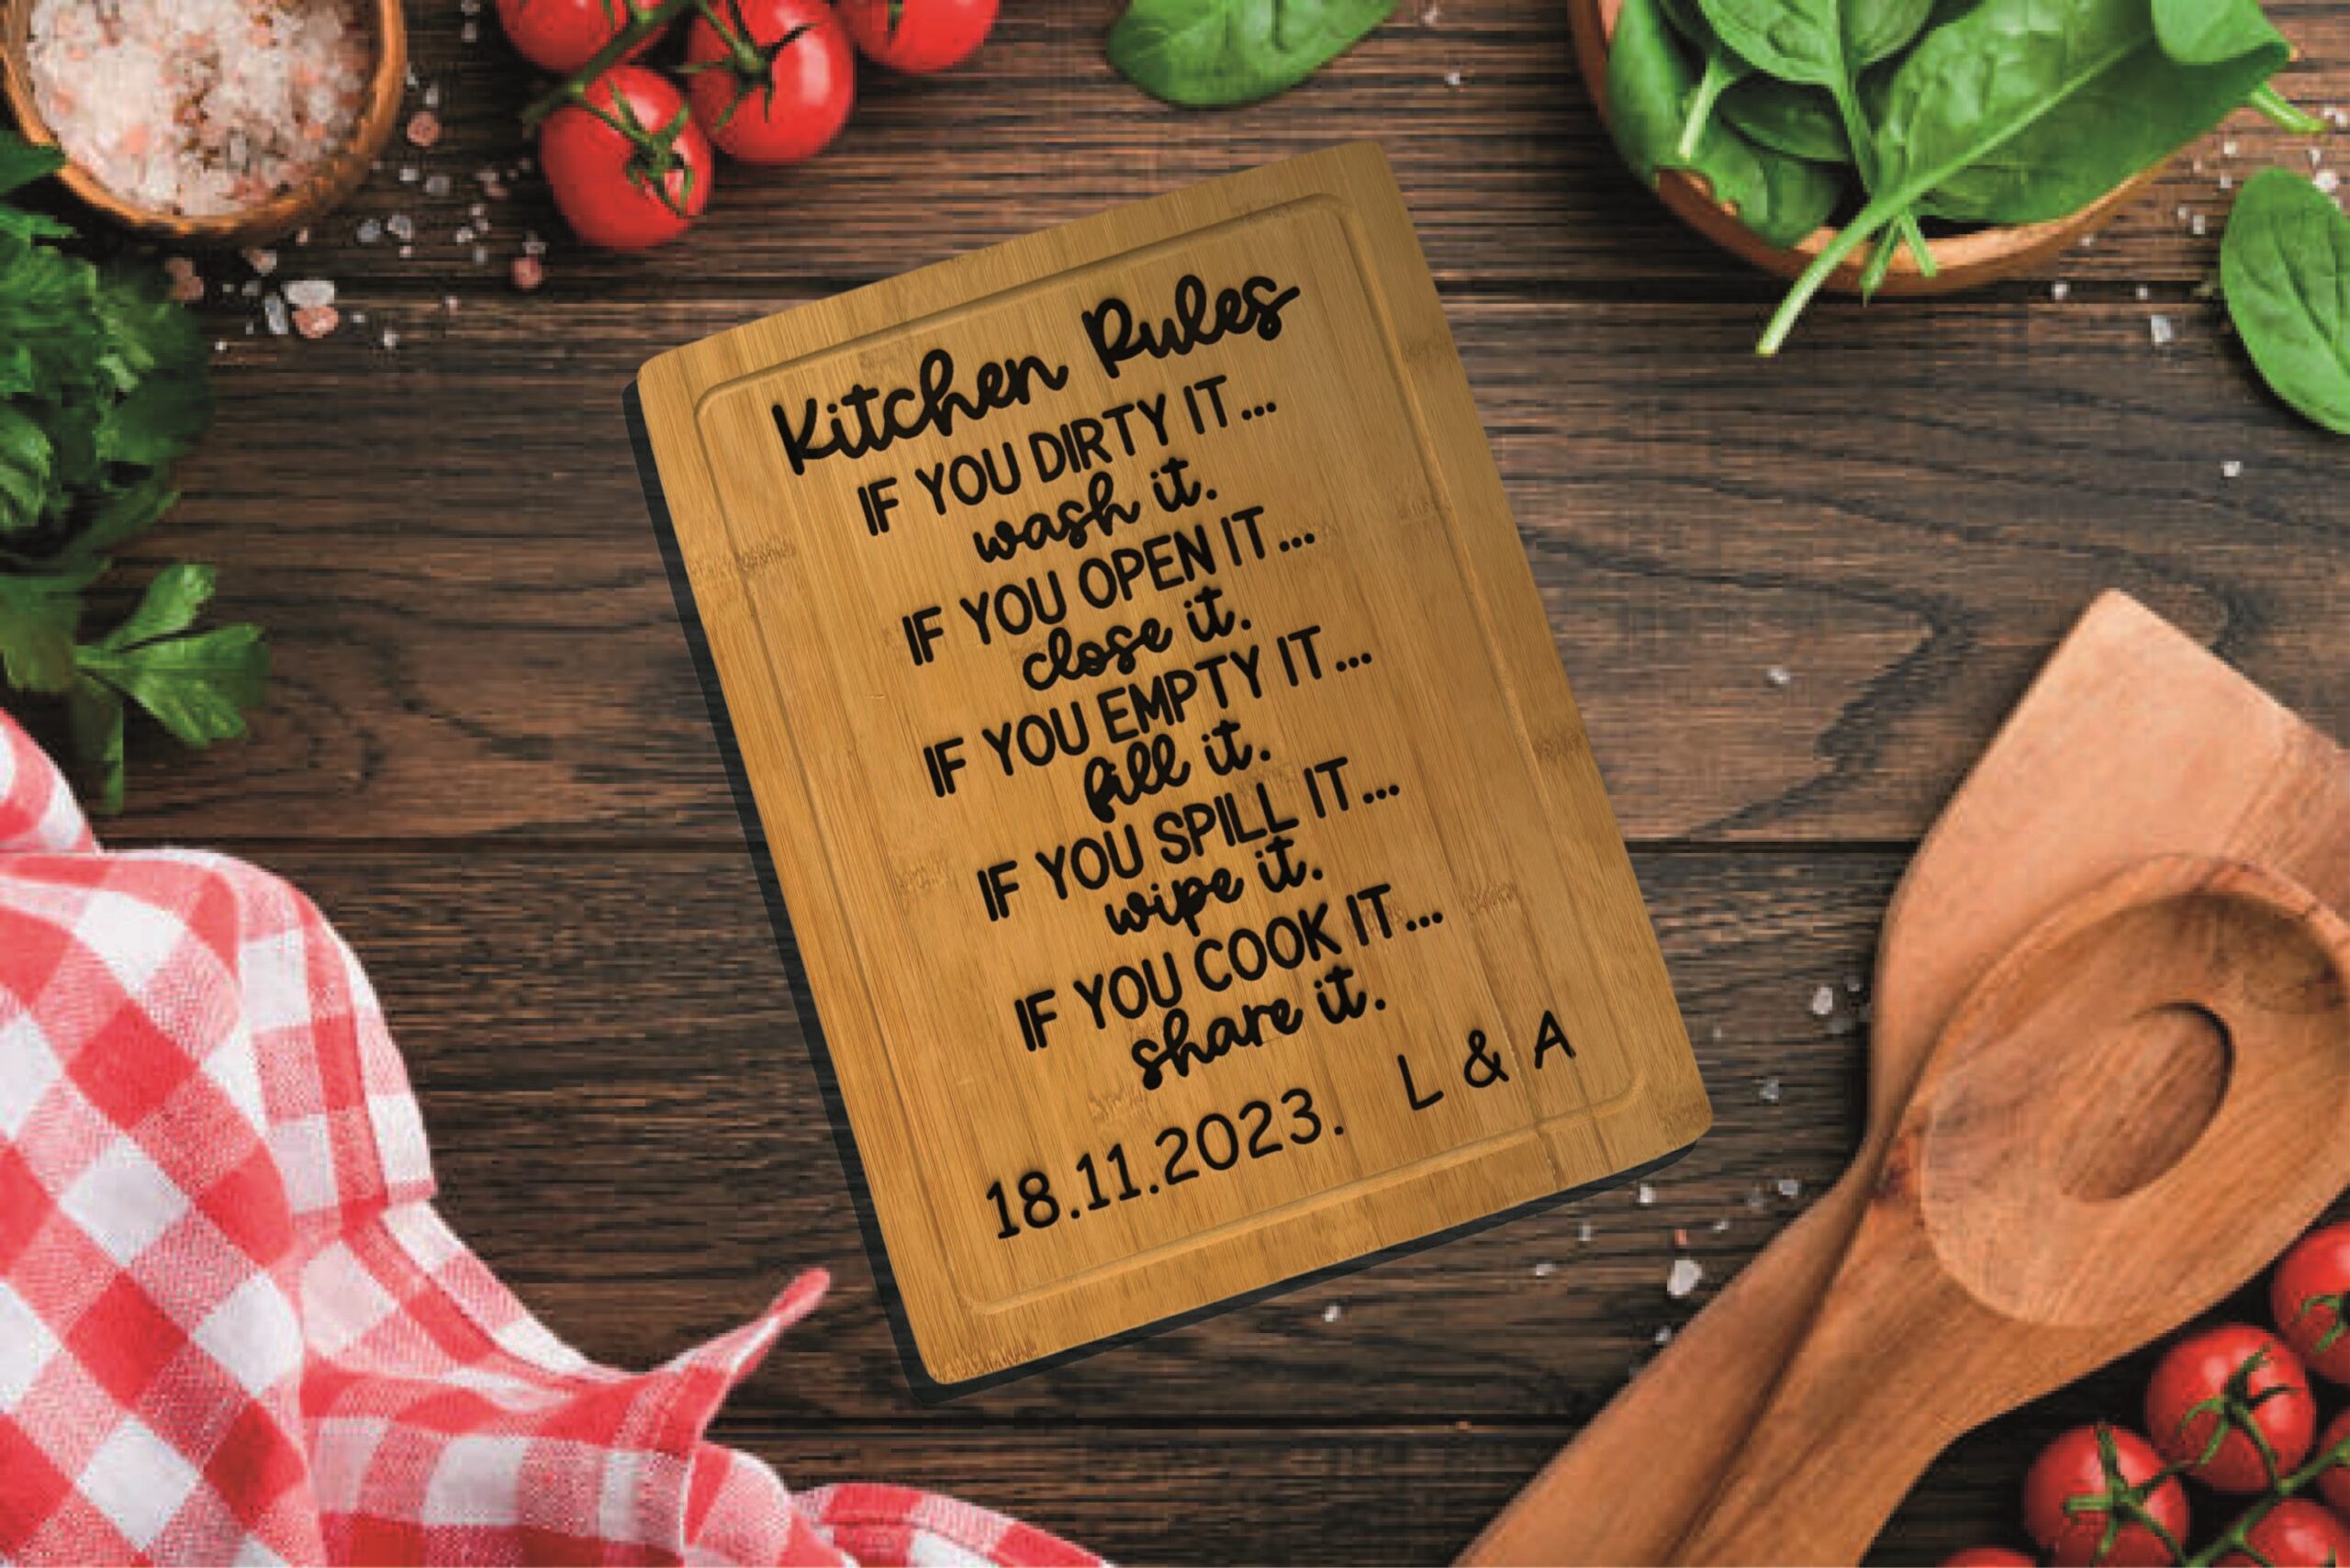 Kitchen Rules
IF YOU DIRTY IT...
wash it.
IF YOU OPEN IT...
close it.
IF YOU EMPTY IT...
fill it.
IF YOU SPILL IT...
wipe it.
IF YOU COOK IT...
share it.
18.11.2023. L & A